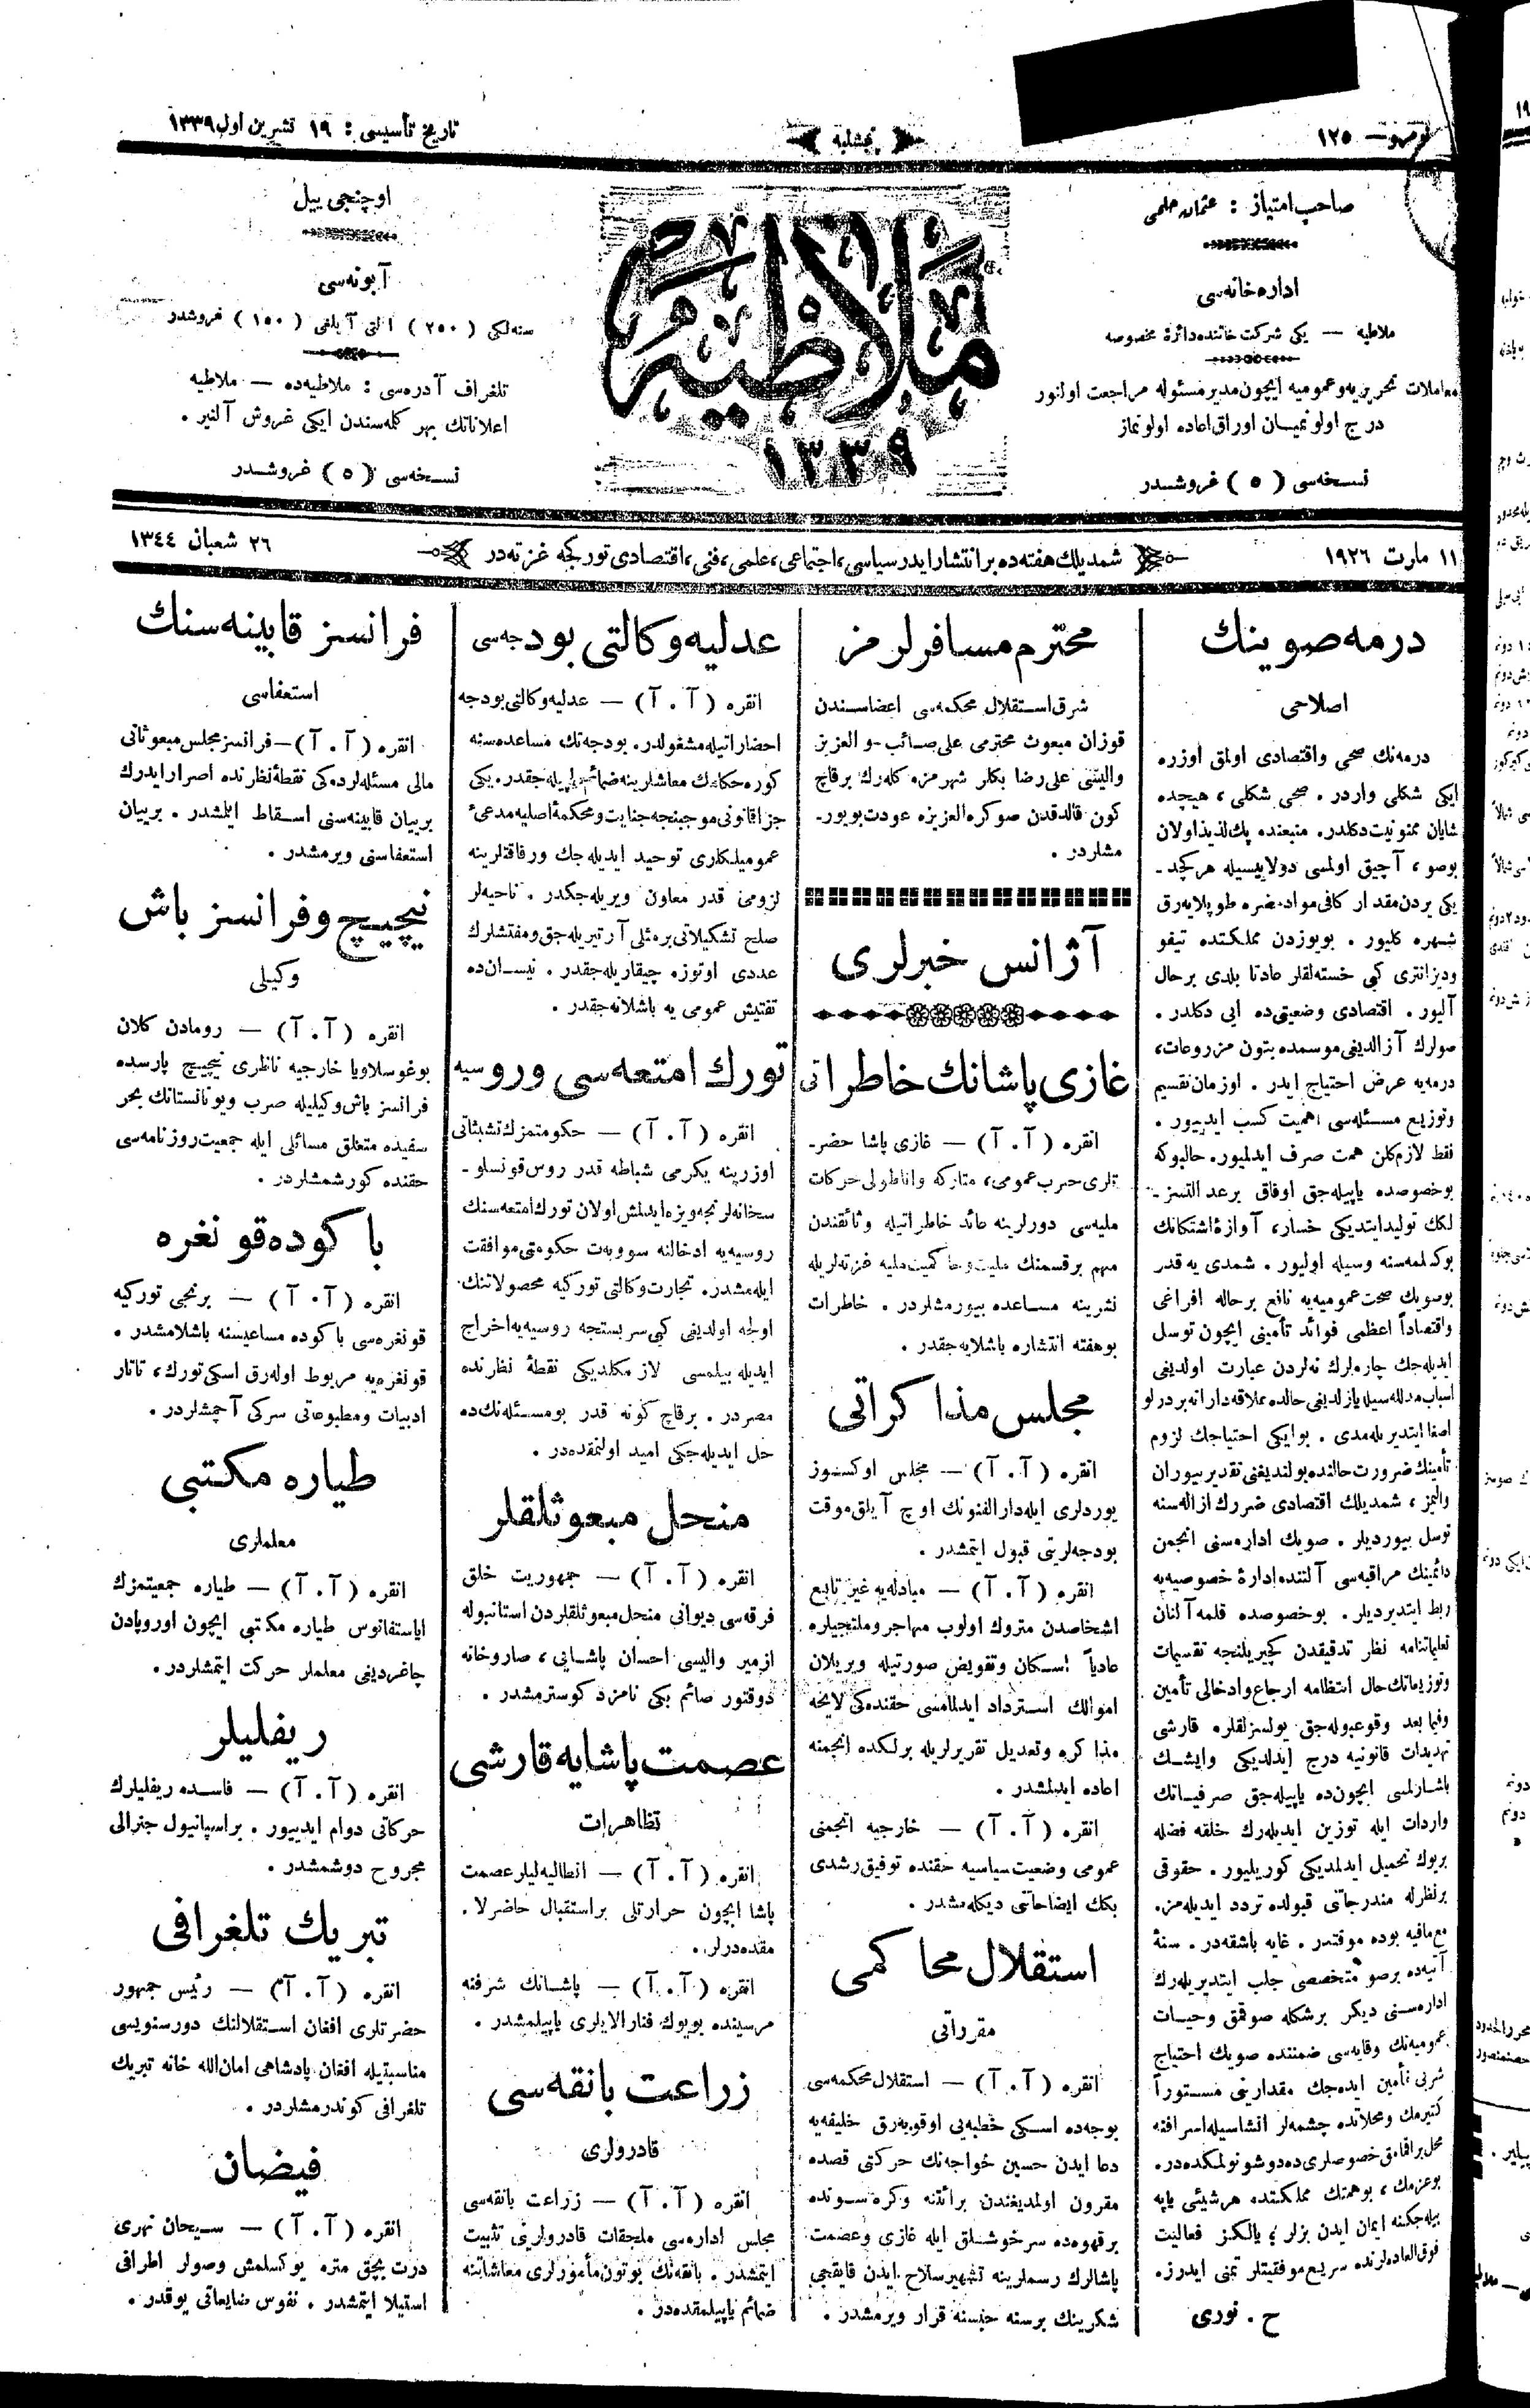 نومرو — ١٢٥
پنجشنبه
تاریخ تأسیسی : ١٩ تشرین اول ١٣٣٩
صاحب امتیاز : عثمان حلمی
اداره‌خانه‌سی
ملاطیه — یکی شرکت خاننده دائرهٔ مخصوصه
معاملات تحریریه و عمومیه ایچون مدیر مسئوله مراجعت اولنور
درج اولونمیان اوراق اعاده اولونماز
نسخه‌سی ( ٥ ) غروشدر
ملاطیه
١٣٣٩
اوچنجی ییل
آبونه‌سی
سنه‌لکی ( ٢٥٠ ) التی آیلغی ( ١٥٠ ) غروشدر
تلغراف آدره‌سی : ملاطیه‌ده — ملاطیه
اعلاناتك بهر کله‌سندن ایکی غروش آلنیر .
نسخه‌سی ( ٥ ) غروشدر
١١ مارت ١٩٢٦
شمدیلك هفته‌ده بر انتشار ایدر سیاسی ، اجتماعی ، علمی ، فنی ، اقتصادی تورکجه غزته‌در
٢٦ شعبان ١٣٤٤
درمه صوینك
اصلاحی
درمه‌نك صحی واقتصادی اولمق اوزره
ایکی شکلی واردر . صحی شکلی ، هیچده
شایان ممنونیت دکلدر. منبعنده پك لذیذ اولان
بوصو ، آچیق اولمسی دولاییسیله هر کچد ـ
یکی یردن مقدار کافی مواد مضره طوپلایه‌رق
شهره کلیور . بویوزدن مملکتده تیفو
ودیزانتری کبی خسته‌لقلر عادتا بلدی برحال
آلیور . اقتصادی وضعیتی‌ده ایی دکلدر .
صولرك آزالدیغی موسمده بتون مزروعات ،
درمه‌یه عرض احتیاج ایدر . اوزمان تقسیم
وتوزیع مسئله‌سی اهمیت کسب ایدییور .
فقط لازم‌کلن همت صرف ایدلمیور. حالبوکه
بوخصوصده یاپیله‌جق اوفاق برعدالتسز ـ
لك تولید ایتدیکی خسار ، آوازهٔ اشتکانك
یوکسلمه‌سنه وسیله اولیور . شمدی یه قدر
بوصویك صحت عمومیه‌یه نافع برحاله افراغی
واقتصاداً اعظمی فوائد تأمینی ایچون توسل
ایدیله‌جك چاره‌لرك نه‌لردن عبارت اولدیغی
اسباب مدلله‌سیله یازلدیغی حالده علاقه‌دارانه بردرلو
اصغا ایتدیریله‌مدی . بوایکی احتیاجك لزوم
تأمینك ضرورت حالنده بولندیغنی تقدیر بیوران
والیمز ، شمدیلك اقتصادی ضررك ازاله‌سنه
توسل بیوردیلر . صویك اداره‌سنی انجمن
دائمینك مراقبه‌سی آلتنده ادارهٔ خصوصیه‌یه
ربط ایتدیردیلر . بوخصوصده قلمه آلنان
تعلیماتنامه نظر تدقیقدن کچیریلنجه تقسیمات
وتوزیعاتك حال انتظامه ارجاع وادخالی تأمین
وفیما بعد وقوعبوله‌جق یولسزلقلره قارشی
تهدیدات قانونیه درج ایدلدیکی وایشك
باشارلمسی ایچون‌ده یاپیله‌جق صرفیاتك
واردات ایله توزین ایدیله‌رك خلقه فضله
بریوك تحمیل ایدلمدیکی کوریلیور . حقوقی
برنظرله مندرجاتی قبولده تردد ایدیله‌مز.
مع‌مافیه بوده موقتدر . غایه باشقه‌در . سنهٔ
آتیه‌ده برصو متخصصی جلب ایتدیریله‌رك
اداره‌سنی دیکر برشکله صوقمق وحیات
عمومیه‌نك وقایه‌سی ضمننده صویك احتیاج
شربی تأمین ایده‌جك مقدارینی مستوراً
کتیرمك ومحلاتده چشمه‌لر انشاسیله اسرافنه
محل براقمامق خصوصلری‌ده دوشونولمکده‌در.
بوعزمك ، بوهمتك مملکتده هر شیئی یاپه
بیله‌جکنه ایمان ایدن بزلر ؛ یالکز فعالیت
فوق‌العاده‌لرنده سریع موفقیتلر تمنی ایدرز.
ح . نوری
محترم مسافرلرمز
شرق استقلال محکمه‌سی اعضاسندن
قوزان مبعوث محترمی علی صائب و العزیز
والیسی علی رضا بکلر شهرمزه کله‌رك برقاچ
کون قالدقدن صوکره العزیزه عودت بویور ـ
مشلردر .
آژانس خبرلری
غازی پاشانك خاطراتی
انقره ( آ . آ ) — غازی پاشا حضر ـ
تلری حرب عمومی ، متارکه واناطولی حرکات
ملیه‌سی دورلرینه عائد خاطراتیله وثائقندن
مهم برقسمنك ملیت وحاکمیت ملیه غزته‌لریله
نشرینه مساعده بیورمشلردر . خاطرات
بوهفته انتشاره باشلایه‌جقدر .
مجلس مذاکراتی
انقره ( آ . آ ) — مجلس اوکسوز
یوردلری ایله دارالفنونك اوچ آیلق موقت
بودجه‌لرینی قبول ایتمشدر .
انقره ( آ . آ ) — مبادله‌یه غیر تابع
اشخاصدن متروك اولوب مهاجر وملتجیلره
عادیاً اسکان وتفویض صورتیله ویریلان
اموالك استرداد ایدلمامسی حقنده‌کی لایحه
مذاکره وتعدیل تقریرلریله برلکده انجمنه
اعاده ایدلمشدر .
انقره ( آ . آ ) — خارجیه انجمنی
عمومی وضعیت سیاسیه حقنده توفیق رشدی
بکك ایضاحاتنی دیکله‌مشدر .
استقلال محاکمی
مقرراتی
انقره ( آ . آ ) — استقلال محکمه‌سی
بوجه‌ده اسکی خطبه‌یی اوقویه‌رق خلیفه‌یه
دعا ایدن حسین خواجه‌نك حرکتی قصده
مقرون اولمدیغندن برائتنه وکره‌سونده
برقهوه‌ده سرخوشلق ایله غازی وعصمت
پاشالرك رسملرینه تشهیر سلاح ایدن قایقجی
شکرینك برسنه حبسنه قرار ویرمشدر .
عدلیه وکالتی بودجه‌سی
انقره ( آ . آ ) — عدلیه وکالتی بودجه
احضاراتیله مشغولدر. بودجه‌نك مساعده‌سنه
کوره حکامك معاشلرینه ضمائم یاپیله‌جقدر. یکی
جزا قانونی موجبنجه جنایت ومحکمهٔ اصلیه مدعئ
عمومیلکلری توحید ایدیله‌جك ورفاقتلرینه
لزومی قدر معاون ویریله‌جکدر . ناحیه‌لر
صلح تشکیلاتی برمثلی آرتیریله‌جق ومفتشلرك
عددی اوتوزه چیقاریله‌جقدر . نیسان‌ده
تفتیش عمومی یه باشلانه‌جقدر .
تورك امتعه‌سی وروسیه
انقره ( آ . آ ) — حکومتمزك تشبثاتی
اوزرینه یکرمی شباطه قدر روس قونسلو ـ
سخانه‌لرنجه ویزه ایدلمش اولان تورك امتعه‌سنك
روسیه‌یه ادخالنه سوویه‌ت حکومتی موافقت
ایله‌مشدر. تجارت وکالتی تورکیه محصولاتنك
اولجه اولدیغی کبی سربستجه روسیه‌یه اخراج
ایدیله بیلمسی لازمکلدیکی نقطهٔ نظرنده
مصردر . برقاچ کونه قدر بومسئله‌نك‌ده
حل ایدیله‌جکی امید اولنمقده‌در .
منحل مبعوثلقلر
انقره ( آ . آ ) — جمهوریت خلق
فرقه‌سی دیوانی منحل مبعوثلقلردن استانبوله
ازمیر والیسی احسان پاشایی ، صاروخانه
دوقتور صائم بکی نامزد کوسترمشدر .
عصمت پاشایه قارشی
تظاهرات
انقره ( آ . آ ) — انطالیه‌لیلر عصمت
پاشا ایچون حرارتلی براستقبال حاضرلا .
مقده‌درلر .
انقره ( آ . آ ) — پاشانك شرفنه
مرسینده بویوك فنار آلایلری یاپیلمشدر .
زراعت بانقه‌سی
قادرولری
انقره ( آ . آ ) — زراعت بانقه‌سی
مجلس اداره‌سی ملحقات قادرولرینی تثبیت
ایتمشدر . بانقه‌نك بوتون مأمورلری معاشاتنه
ضمائم یاپیلمقده‌در .
فرانسز قابینه‌سنك
استعفاسی
انقره ( آ . آ ) — فرانسز مجلس مبعوثانی
مالی مسئله‌لرده‌کی نقطهٔ نظرنده اصرار ایدرك
بریان قابینه‌سنی اسقاط ایلمشدر . بریان
استعفاسنی ویرمشدر .
نیچیچ و فرانسز باش
وکیلی
انقره ( آ . آ ) — رومادن کلان
یوغوسلاویا خارجیه ناظری نیچیچ پارسده
فرانسز باش وکیلیله صرب ویونانستانك بحر
سفیده متعلق مسائلی ایله جمعیت روزنامه‌سی
حقنده کورشمشلردر .
باکوده قونغره
انقره ( آ . آ ) — برنجی تورکیه
قونغره‌سی باکوده مساعیسنه باشلامشدر .
قونغره‌یه مربوط اوله‌رق اسکی تورك ، تاتار
ادبیات ومطبوعاتی سرکی آچمشلردر .
طیاره مکتبی
معلملری
انقره ( آ . آ ) — طیاره جمعیتمزك
ایاستفانوس طیاره مکتبی ایچون اوروپادن
چاغردیغی معلملر حرکت ایتمشلردر .
ریفلیلر
انقره ( آ . آ ) — فاسده ریفلیلرك
حرکاتی دوام ایدییور . براسپانیول جنرالی
مجروح دوشمشدر .
تبریك تلغرافی
انقره ( آ . آ ) — رئیس جمهور
حضرتلری افغان استقلالنك دورسنویسی
مناسبتیله افغان پادشاهی امان‌الله خانه تبریك
تلغرافی کوندرمشلردر .
فیضان
انقره ( آ . آ ) — سیحان نهری
درت بچق متره یوکسلمش وصولر اطرافی
استیلا ایتمشدر . نفوس ضایعاتی یوقدر .